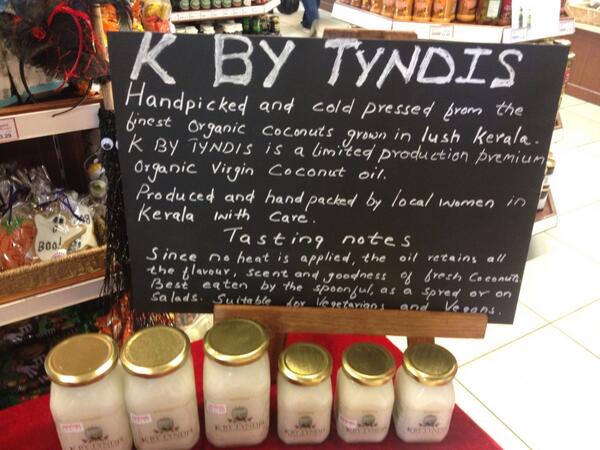 K BY TYNDIS
Handpicked and cold pressed from the
finest Organic Coconuts grown in lush Kerala.
K BY TYNDIS is a limited production premium
Organic Virgin Coconut oil.
Produced and hand packed by local women in
Kerala with care.
Tasting notes
Since no heat is applied, the oil retains all
the flavour, scent and goodness of fresh Coconuts
Best eaten by the spoonful, as a spred or on
Salads. Suitable for Vegetarians and Vegans.
BOO!
K BY TYNDIS
K BY TYNDIS
K BY TYNDIS
K BY TYNDIS
K BY TYNDIS
K BY TYNDIS